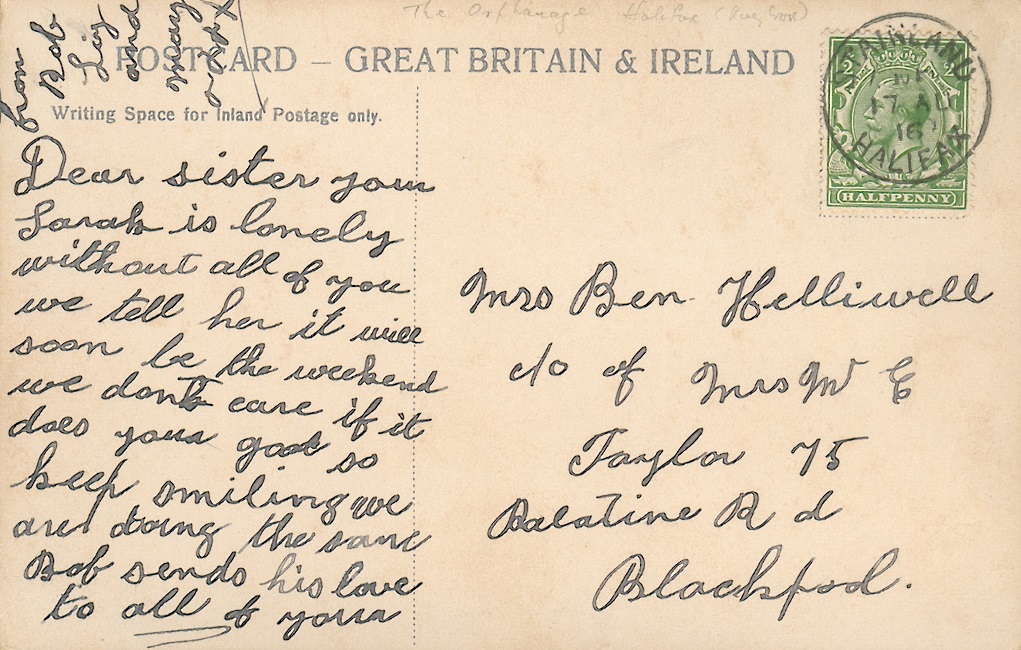 The Orphanage Halifax
POSTCARD – GREAT BRITAIN & IRELAND
Writing Space for Inland Postage only.
from
Bob
Liz
and
Mary
STAINLAND
17 AU
16
HALIFAX
HALFPENNY
Dear sister your
Sarah is lonely
without all of you
we tell her it will
soon be the weekend
we don't care if it
does your good so
keep smiling we
are doing the same
Bob sends his love
to all of your
Mrs Ben Helliwell
c/o of Mrs Mc E
Taylor 75
Palatine R d
Blackpool.